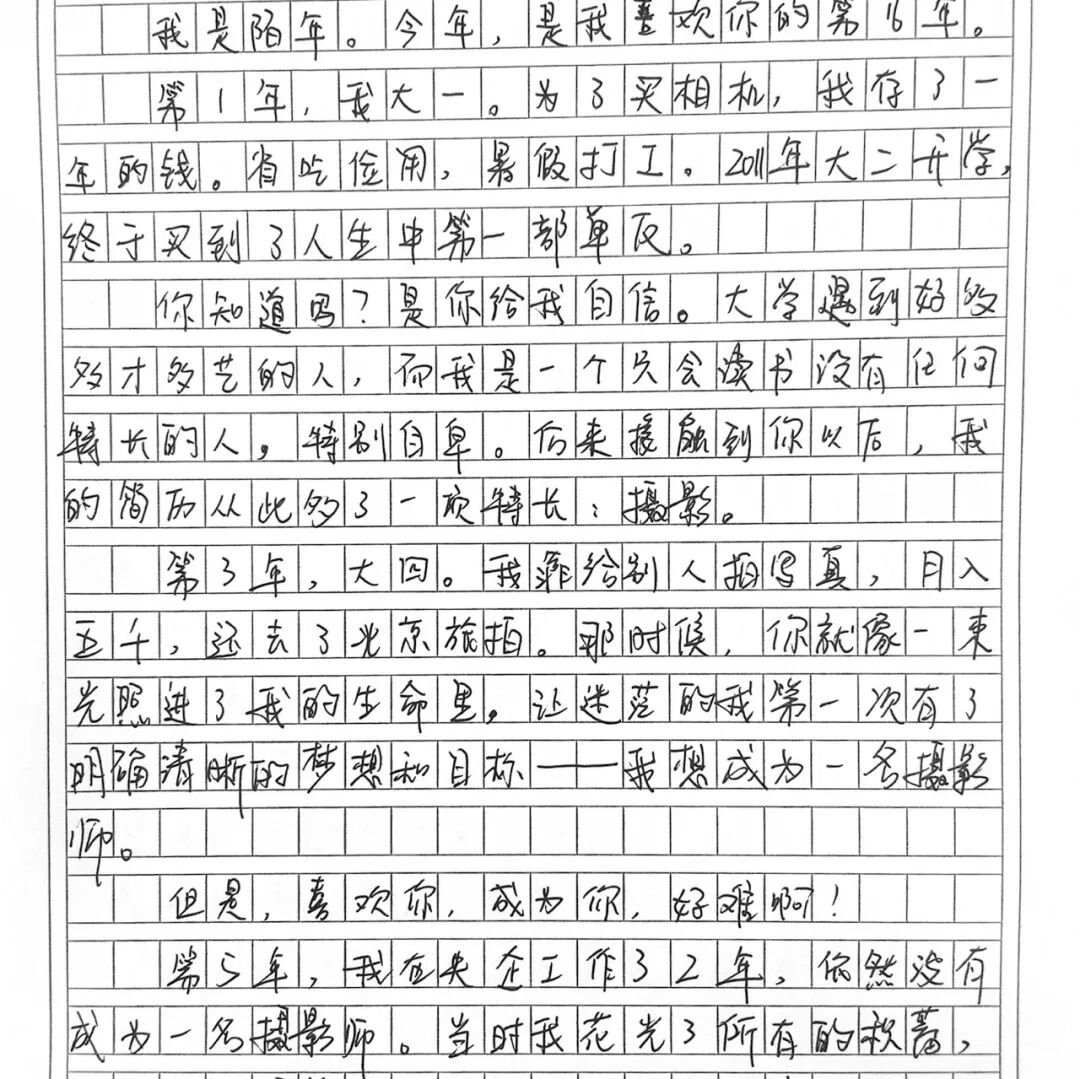 我是陌年。今年，是我喜欢你的第16年。
第1年，我大一。为了买相机，我存了一
年的钱。省吃俭用，暑假打工。2011年大二开学，
终于买到了人生中第一部单反。
你知道吗？是你给我自信。大学遇到好多
多才多艺的人，而我是一个只会读书没有任何
特长的人，特别自卑。后来接触到你以后，我
的简历从此多了一项特长：摄影。
第3年，大四。我靠给别人拍写真，月入
五千，还去了北京旅拍。那时候，你就像一束
光照进了我的生命里，让迷茫的我第一次有了
明确清晰的梦想和目标——我想成为一名摄影
师。
但是，喜欢你，成为你，好难啊！
第5年，我在央企工作了2年，依然没有
成为一名摄影师。当时我花光了所有的积蓄，